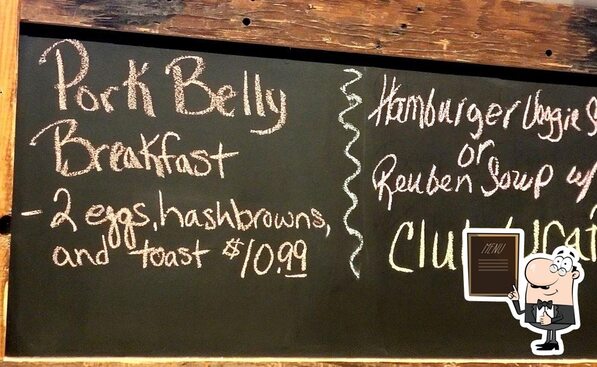 Pork Belly
Breakfast
- 2 eggs, hashbrowns,
and toast $10.99
Hamburger Veggie
or
Reuben Soup w/
MENU